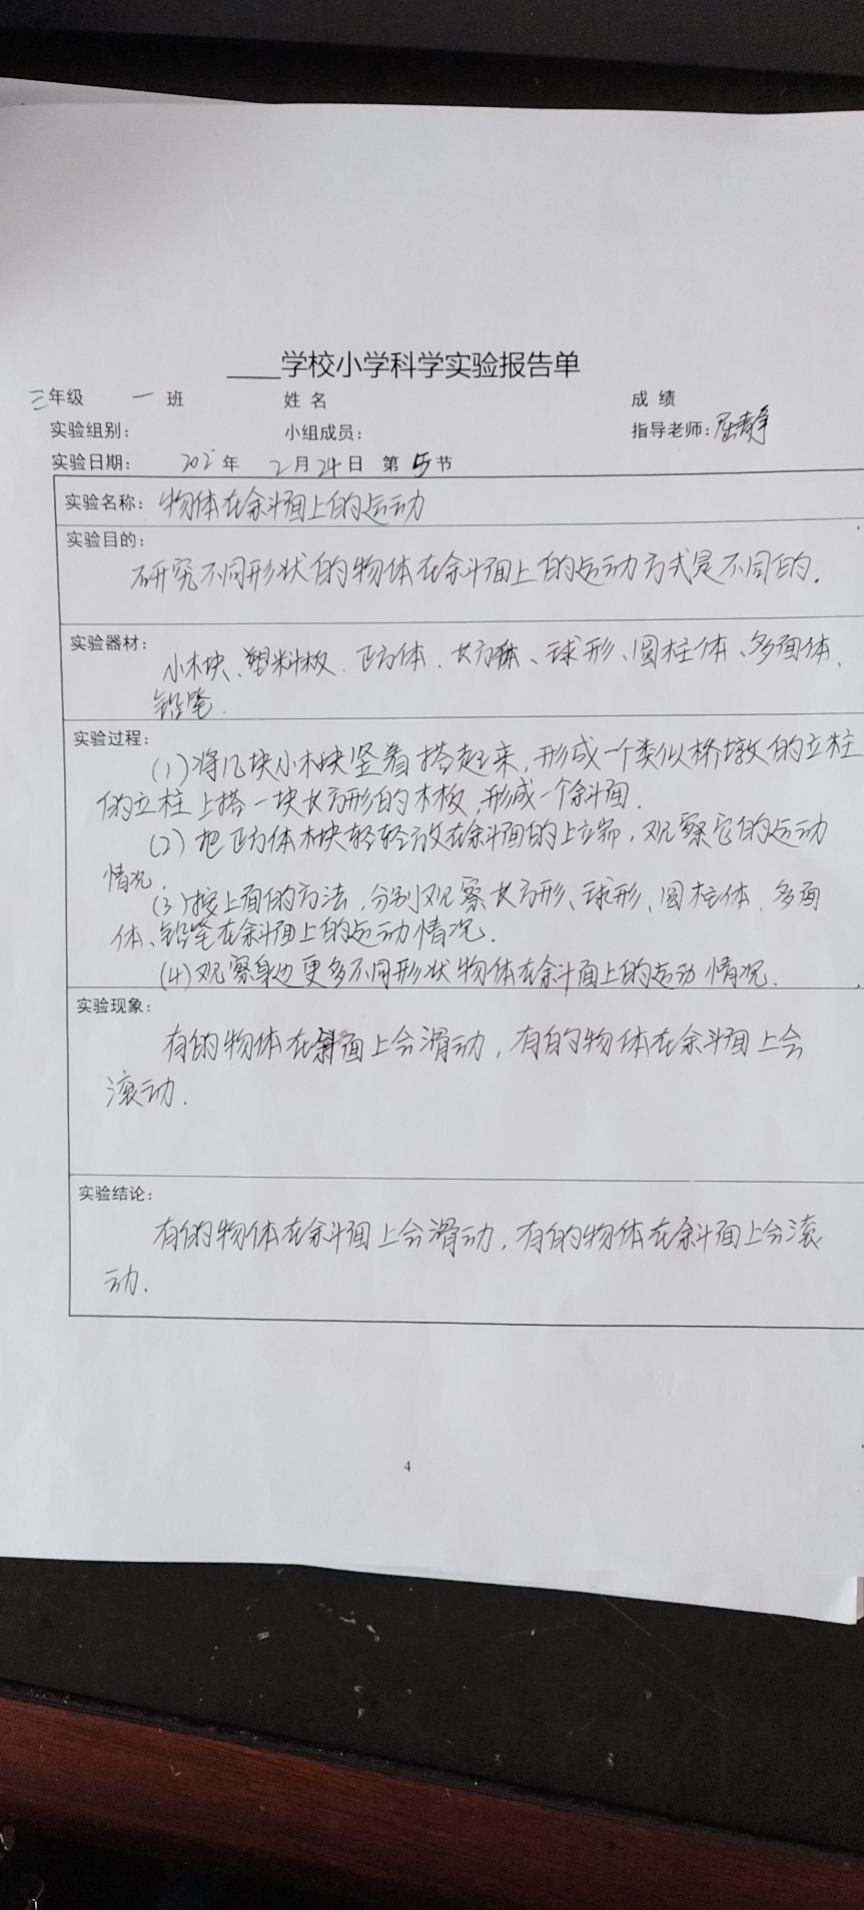 ____学校小学科学实验报告单
三年级 一 班 姓 名 成 绩
实验组别: 小组成员: 指导老师:屈静
实验日期: 202 年 2月24日 第 5 节
实验名称: 物体在斜面上的运动
实验目的:
研究不同形状的物体在斜面上的运动方式是不同的.
实验器材:
小木块、塑料板、正方体、长方体、球形、圆柱体、多面体、
铅笔.
实验过程:
(1)将几块小木块竖着搭起来,形成一个类似桥墩的立柱
的立柱上搭一块长方形的木板,形成一个斜面.
(2)把正方体木块轻轻放在斜面的上端,观察它的运动
情况.
(3)按上面的方法,分别观察长方形、球形、圆柱体、多面
体、铅笔在斜面上的运动情况.
(4)观察身边更多不同形状物体在斜面上的运动情况.
实验现象:
有的物体在斜面上会滑动,有的物体在斜面上会
滚动.
实验结论:
有的物体在斜面上会滑动,有的物体在斜面上会滚
动.
4